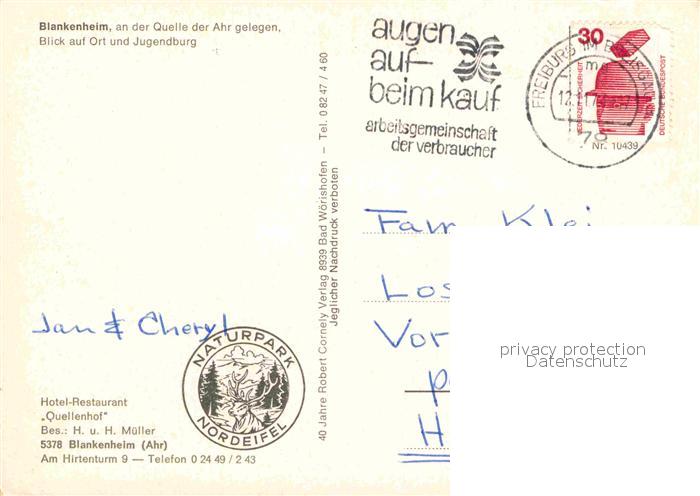 Blankenheim, an der Quelle der Ahr gelegen,
Blick auf Ort und Jugendburg
augen
auf-
beim kauf
arbeitsgemeinschaft
der verbraucher
FREIBURG IM BREISGAU
mc
12.11.7
79
30
JEDERZEIT SICHERHEIT
DEUTSCHE BUNDESPOST
Nr. 10439
40 Jahre Robert Cornely Verlag 8939 Bad Wörishofen – Tel. 0 82 47 / 4 60
Jeglicher Nachdruck verboten
Fam Klei
Los
Vor
H
privacy protection
Datenschutz
Jan & Cheryl
NATURPARK
NORDEIFEL
Hotel-Restaurant
„Quellenhof“
Bes.: H. u. H. Müller
5378 Blankenheim (Ahr)
Am Hirtenturm 9 — Telefon 0 24 49 / 2 43